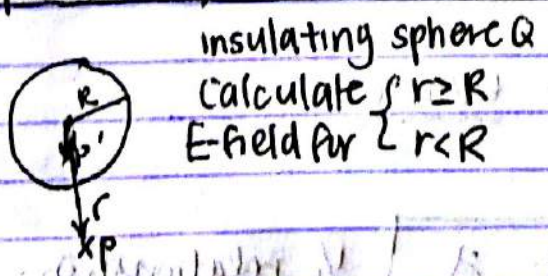 insulating sphere Q
Calculate { r≥R
E-field for { r<R
R
r
xp